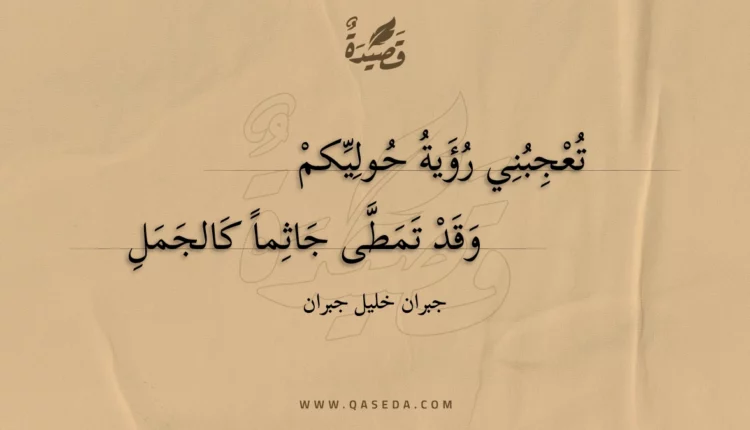 قَصِيْدَةٌ
تُعْجِبُنِي رُؤَيةُ حُولِيِّكمْ
وَقَدْ تَمَطَّى جَاثِماً كَالجَمَلِ
جبران خليل جبران
WWW.QASEDA.COM